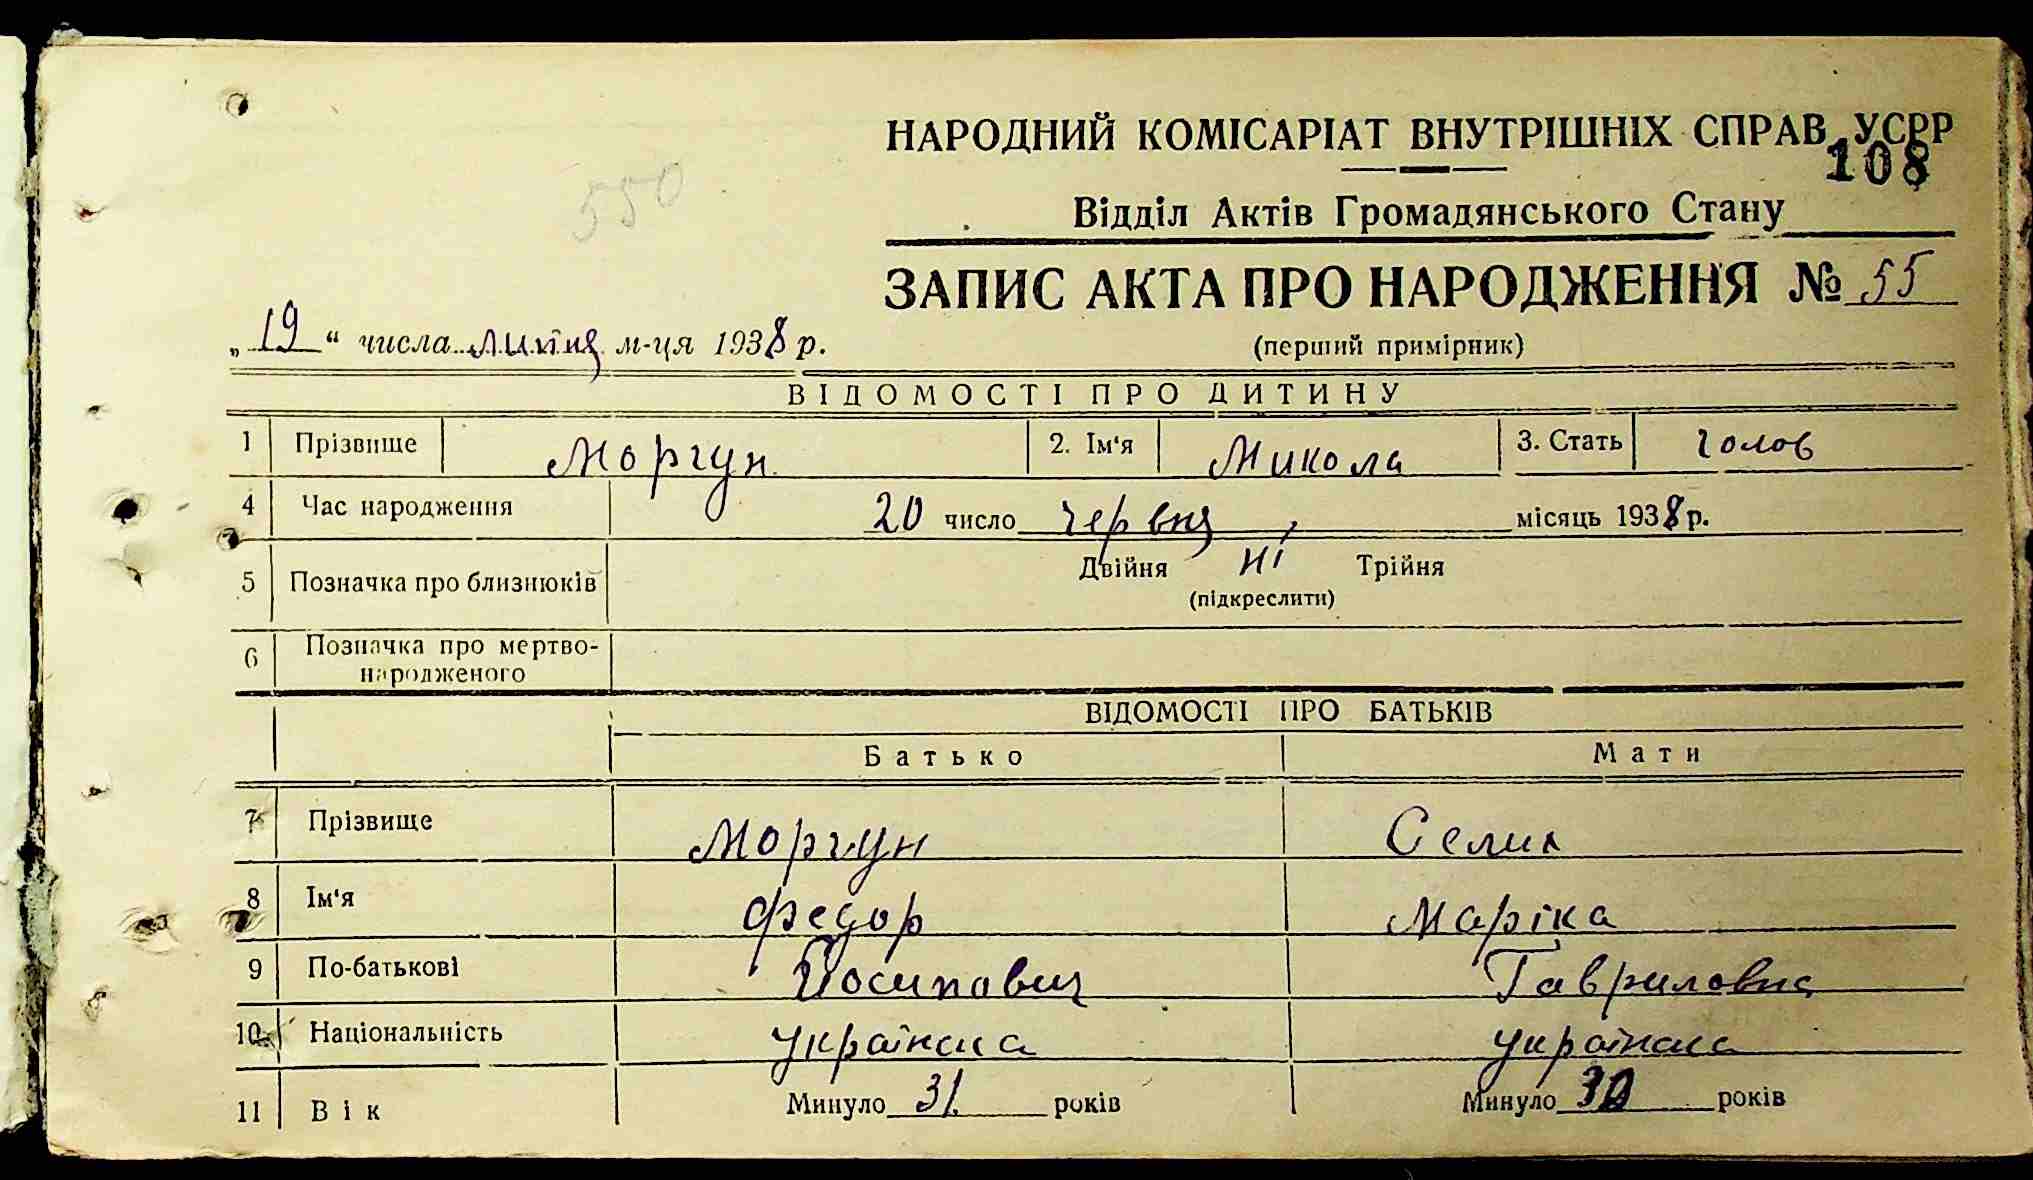 550
НАРОДНИЙ КОМІСАРІАТ ВНУТРІШНІХ СПРАВ УСРР
108
Відділ Актів Громадянського Стану
ЗАПИС АКТА ПРО НАРОДЖЕННЯ № 55
„19“ числа липня м-ця 1938 р.
(перший примірник)
ВІДОМОСТІ ПРО ДИТИНУ
1 Прізвище Моргун 2. Ім'я Микола 3. Стать Чолов
4 Час народження 20 число червня місяць 1938 р.
5 Позначка про близнюків Двійня ні Трійня
(підкреслити)
6 Позначка про мертво-
народженого
ВІДОМОСТІ ПРО БАТЬКІВ
Батько Мати
7 Прізвище Моргун
8 Ім'я Федор Маріка
9 По-батькові Йосипович Гавриловна
10 Національність
11 Вік Минуло 31 років Минуло років